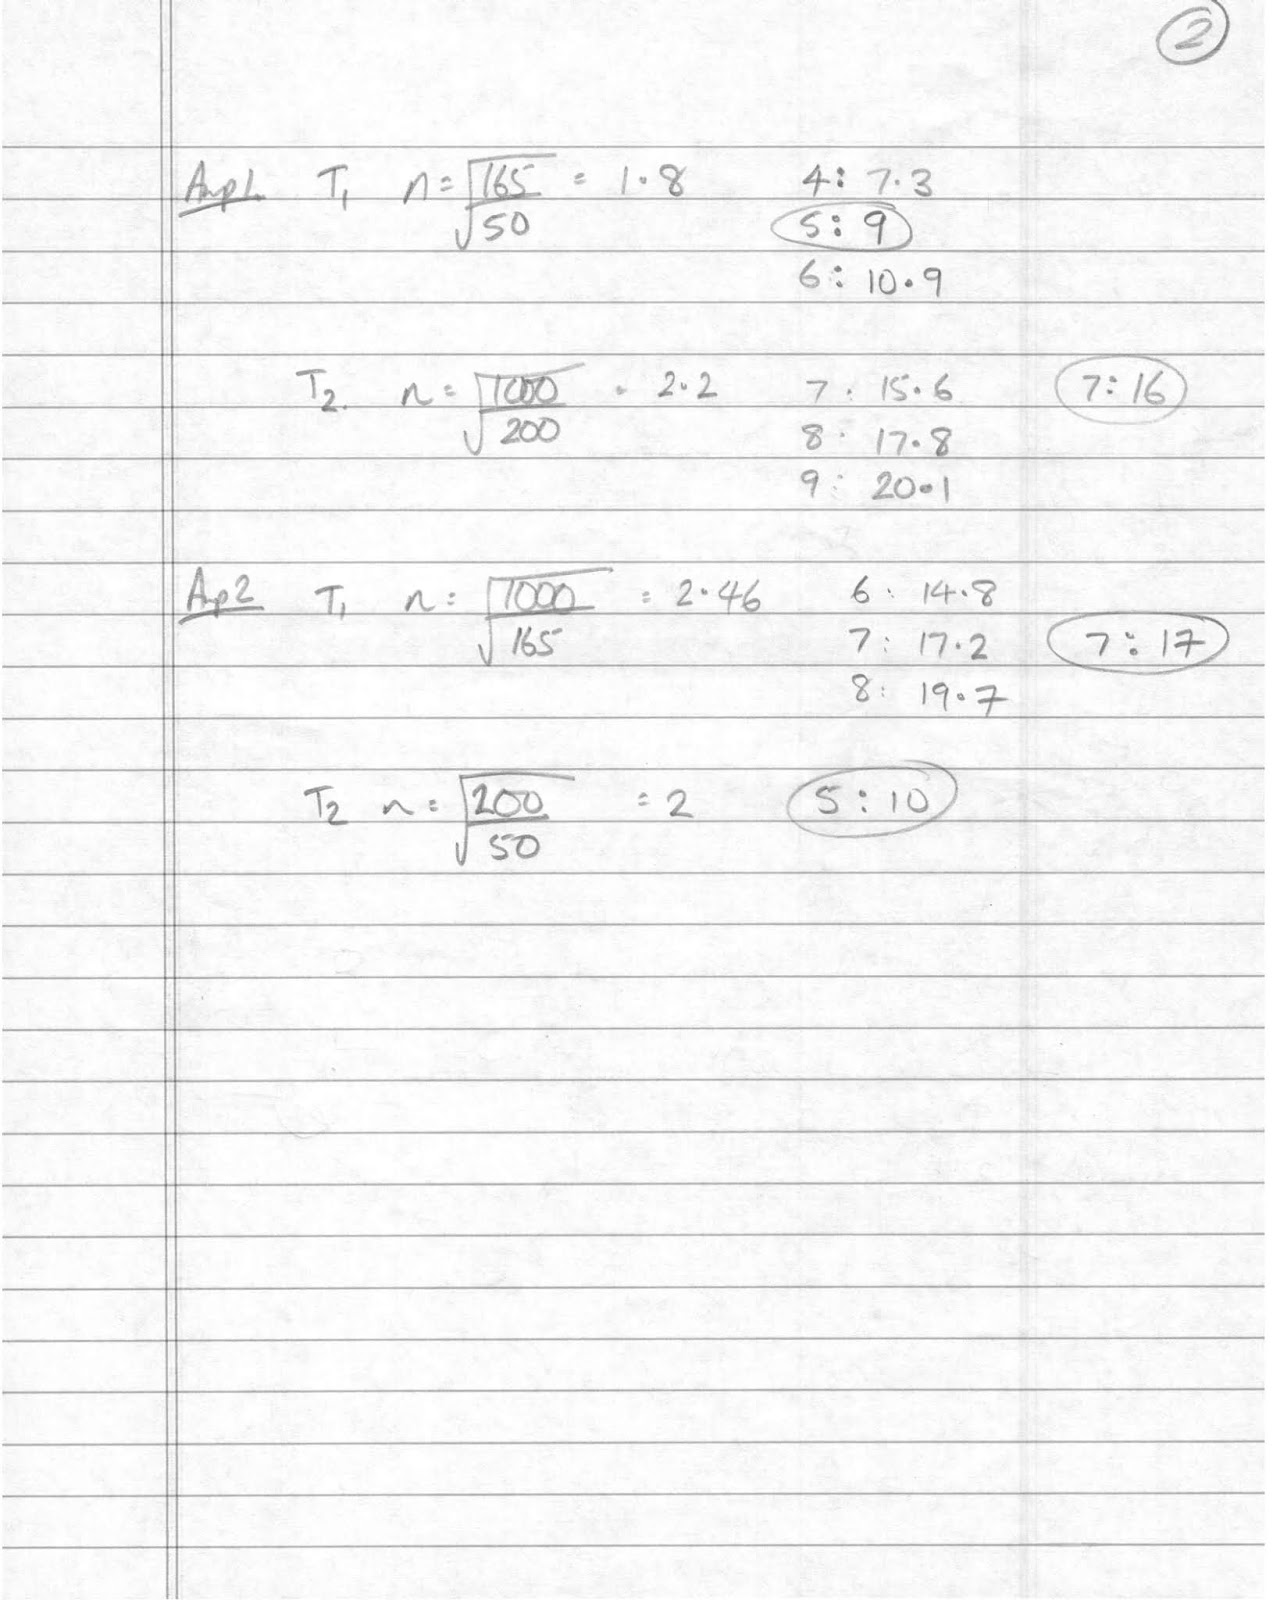 2
Amp1 T1 n = √165/50 = 1.8 4: 7.3
5: 9
6: 10.9
T2. n = √1000/200 = 2.2 7: 15.6 7:16
8: 17.8
9: 20.1
Amp2 T1 n = √1000/165 = 2.46 6: 14.8
7: 17.2 7:17
8: 19.7
T2 n = √200/50 = 2 5:10